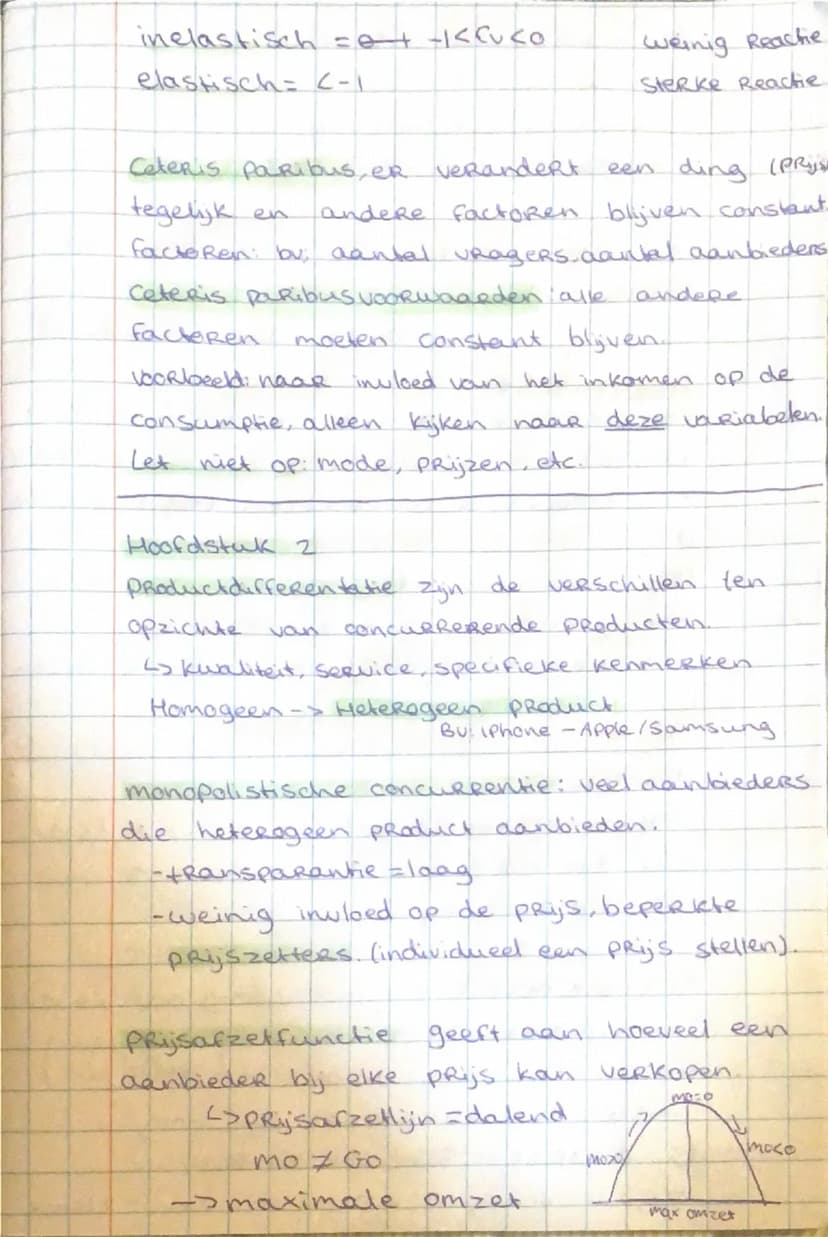 inelastisch = -1<Ev<0 weinig Reactie
elastisch = <-1 sterke Reactie
Ceteris paribus, er verandert een ding (prijs
tegelijk en andere factoren blijven constant.
factoren: bv: aantal vragers, aantal aanbieders
Ceteris paribusvoorwaarden: alle andere
factoren moeten constant blijven.
voorbeeld: naar invloed van het inkomen op de
consumptie, alleen kijken naar deze variabelen.
Let niet op: mode, prijzen, etc.
Hoofdstuk 2
Productdifferentatie zijn de verschillen ten
opzichte van concurrerende producten.
↳ kwaliteit, service, specifieke kenmerken
Homogeen -> Heterogeen product
Bv: iphone - Apple/Samsung
monopolistische concurrentie: veel aanbieders
die heterogeen product aanbieden.
-transparantie = laag
-weinig invloed op de prijs, beperkte
prijszetters. (individueel een prijs stellen).
Prijsafzetfunctie geeft aan hoeveel een
aanbieder bij elke prijs kan verkopen.
↳ prijsafzetlijn = dalend
mo ≠ GO
-> maximale omzet
mo=0
mo>0
mo<0
max omzet